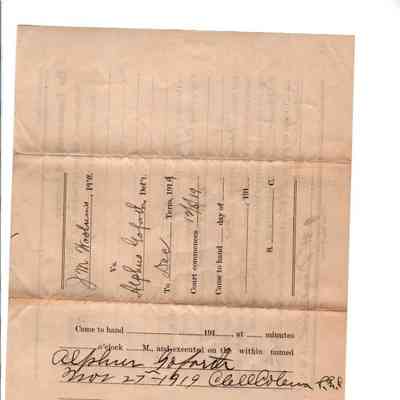 J. M. Woolums, Pl'ff.
Vs.
Alphus Goforth, Def't.
To Dec Term, 1919
Court commences 12/8/19
Came to hand day of
191
S. C.
Came to hand 191 , at minutes
o'clock M., and executed on the within named
Alphus Goforth
Nov 27-1919